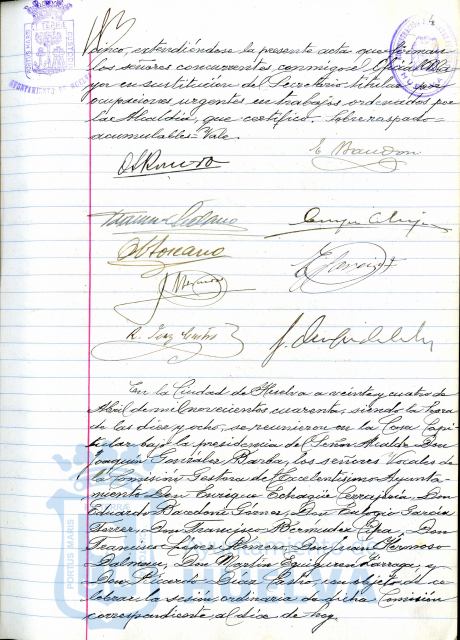 cinco, extendiéndose la presente acta que firman
los señores concurrentes conmigo el Oficial Ma
yor en sustitución del Secretario titular por
ocupaciones urgentes en trabajos ordenados por
la Alcaldía, que certifico. Sobrerraspado=
acumulables=Vale.
En la Ciudad de Huelva a veinte y cuatro de
Abril de mil novecientos cuarenta, siendo la hora
de las diez y ocho, se reunieron en la Casa Capi
tular bajo la presidencia del Señor Alcalde Don
Joaquín González Barba, los señores Vocales de
la Comisión Gestora del Excelentísimo Ayunta
miento Don Enrique Echagüe Don
Eduardo Gomez, Don Eulogio García
Ferrer, Don Francisco Bermudez Don
Francisco López Don Juan Hermoso
Dalmau, Don Martín y
Don Ricardo Diaz Castro, con objeto de ce
lebrar la sesión ordinaria de dicha Comisión
correspondiente al día de hoy.
PORTUS MARIS
HUELVA